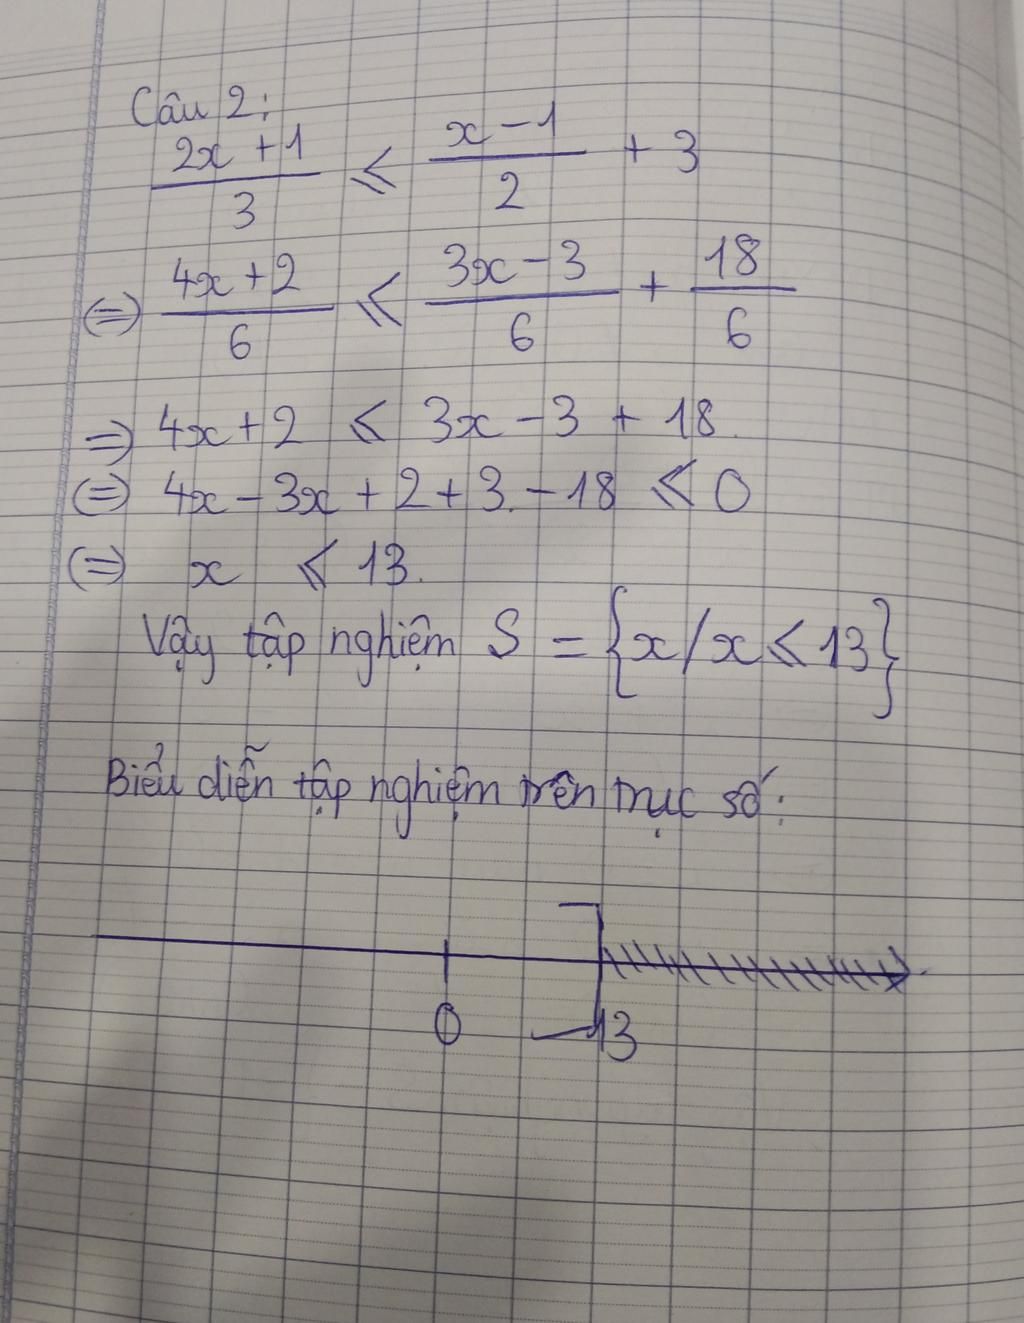 Câu 2:
(2x + 1)/3 ≤ (x - 1)/2 + 3
(=) (4x + 2)/6 ≤ (3x - 3)/6 + 18/6
=) 4x + 2 ≤ 3x - 3 + 18.
(=) 4x - 3x + 2 + 3. - 18 ≤ 0
(=) x ≤ 13.
Vậy tập nghiệm S = {x/x ≤ 13}
Biểu diễn tập nghiệm trên trục số:
0 13